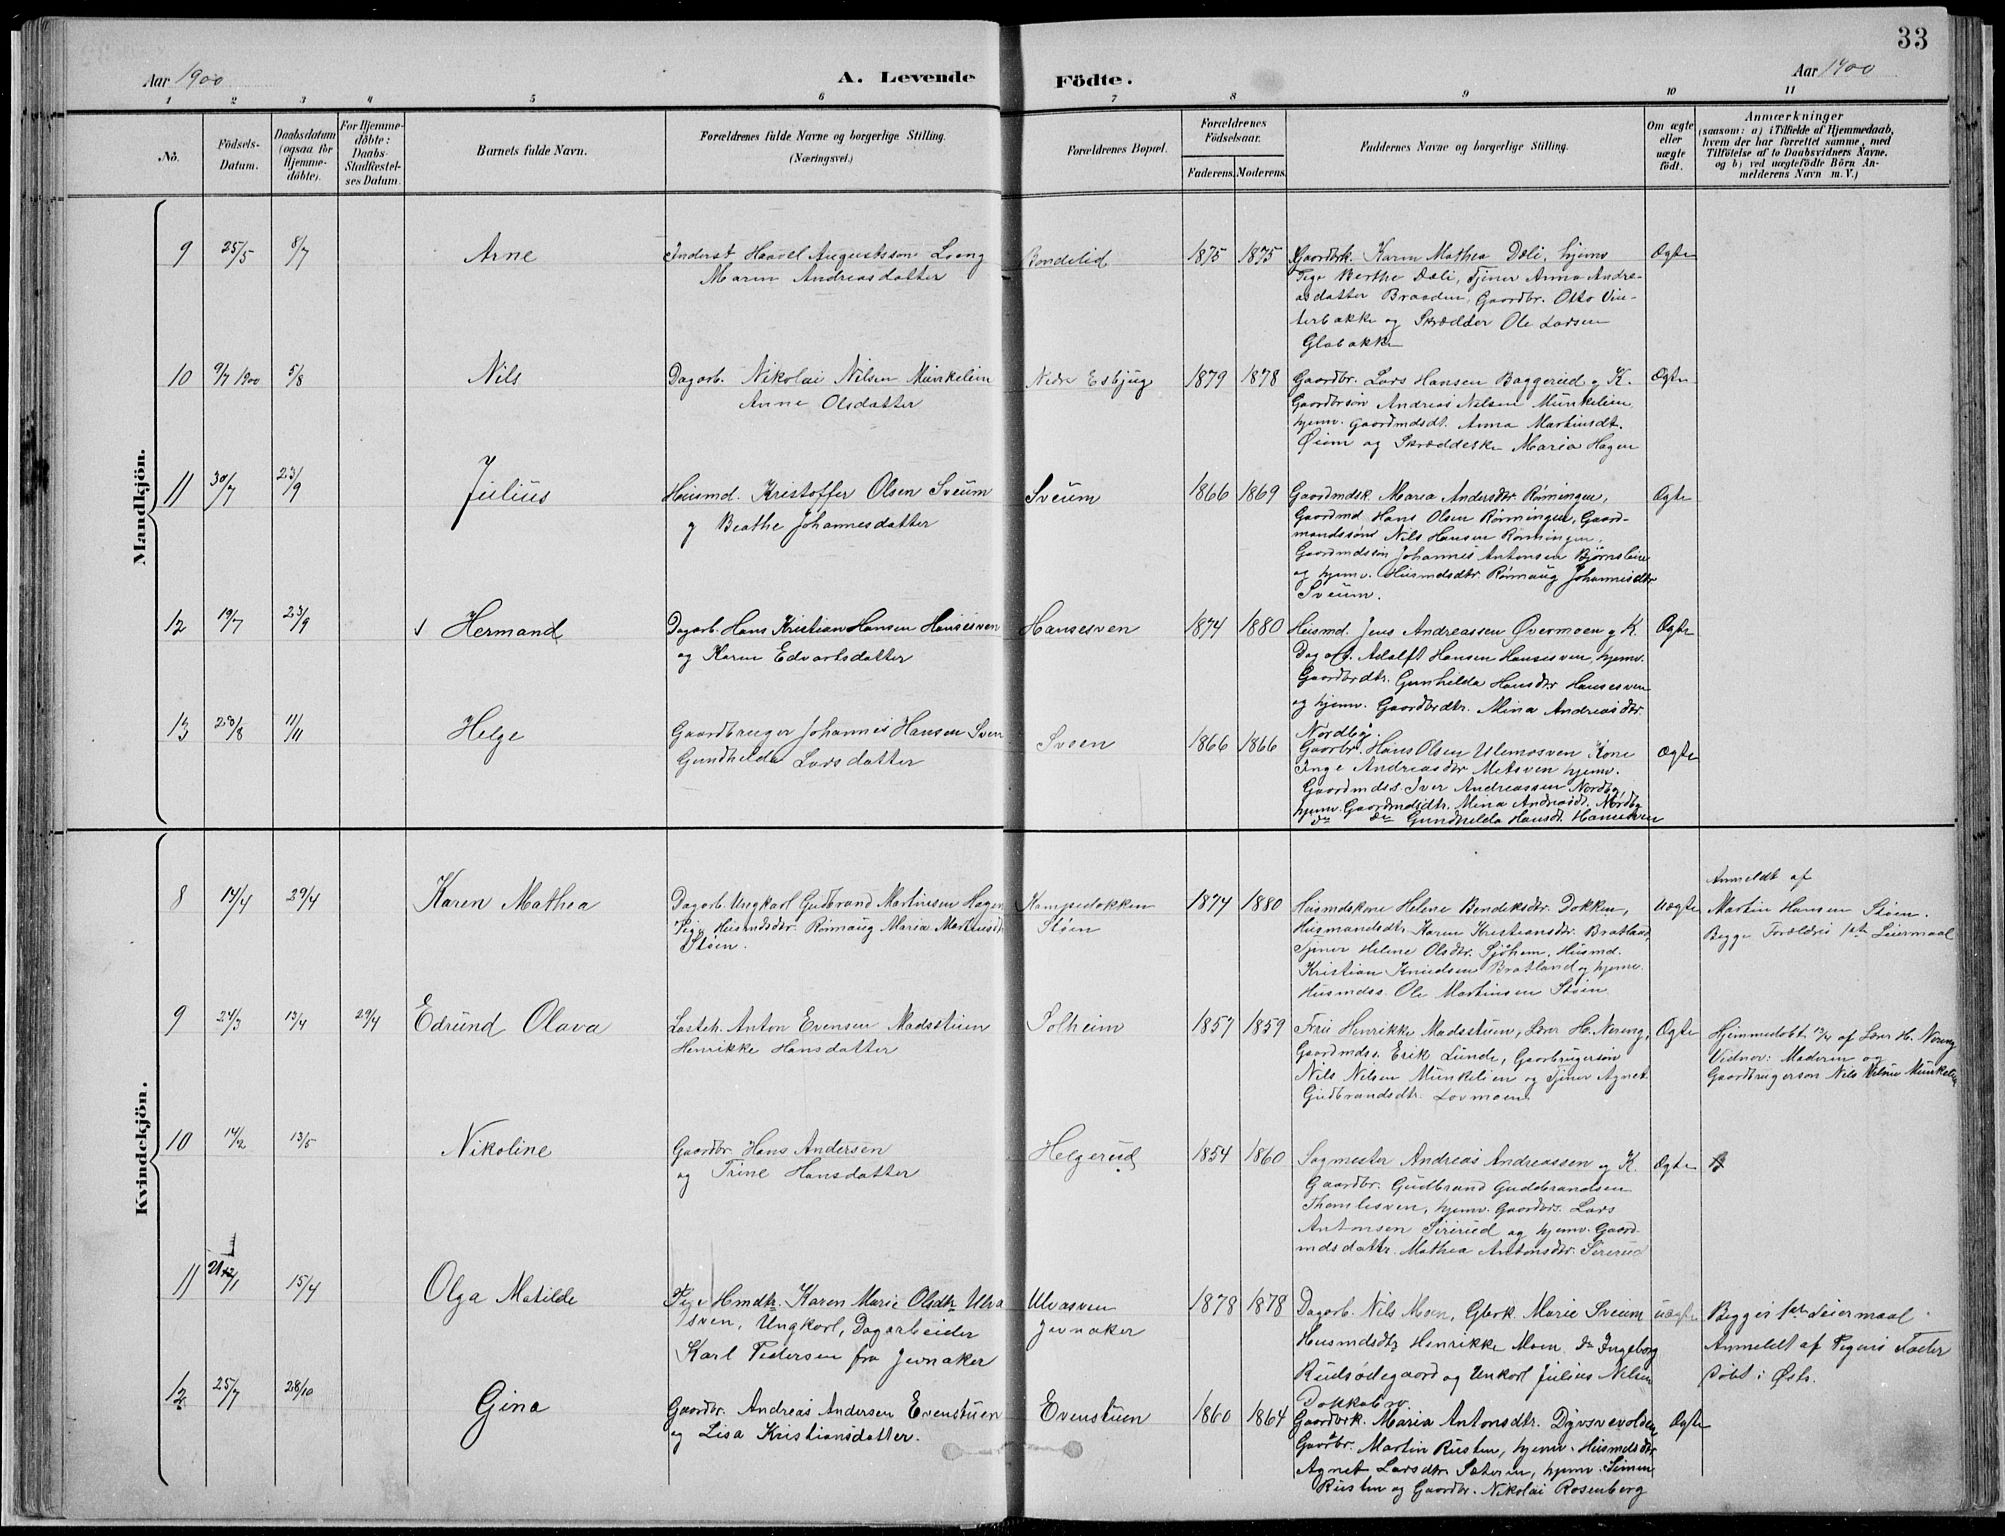 33
Aar 1900
A. Levende
Födte.
Aar 1900
1 2 3 4 5 6 7 8 9 10 11
No.
Födsels-
Datum.
Daabsdatum
(ogsaa for
Hjemme-
döbte).
For Hjemme-
döbte:
Daabs-
Stadfæstel-
ses Datum.
Barnets fulde Navn.
Forældrenes fulde Navne og borgerlige Stilling.
(Næringsvei.)
Forældrenes Bopæl.
Forældrenes
Födselsaar.
Faderens.
Moderens.
Faddernes Navne og borgerlige Stilling.
Om ægte
eller
uægte
födt.
Anmærkninger
(saasom: a) i Tilfælde af Hjemmedaab,
hvem der har forrettet samme, med
Tilföielse af to Daabsvidners Navne.
og b) ved uægtefödte Börn An-
melderens Navn m. V.)
Mandkjön.
9 25/5 8/7 Arne
Inderst Haavel Augustsson Loeng
Maren Andreasdatter
Bondelid
1875 1875
Gaardbrk. Karen Mathea Dæli, hjemv
Pige Berthe Dæli, Tjener Anna Andre-
asdatter Braaden, Gaardbr. Otto Vin-
terbakke og Skrædder Ole Larsen
Glabakke
Ægte
10 9/7 1900 5/8 Nils
Dagarb. Nikolai Nilsen Munkelien
Anne Olsdatter
Nedre Esbjug
1879 1878
Gaardbr. Lars Hansen Baggerud og K.
Gaardbrsøn Andreas Nilsen Munkelien
hjemv. Gaardmdsdt. Anna Martinsdt.
Øiom og Skrædderske Maria Hagen
Ægte
11 30/7 23/9 Julius
Husmd. Kristoffer Olsen Sveum
og Beathe Johannesdatter
Sveum
1866 1869
Gaardmdsk. Maria Andersdtr. Rønningen,
Gaardmd Hans Olsen Rønningen, Gaard-
mandssøns Nils Hansen Rønningen,
Gaardmdssøn Johannes Antonsen Bjørnslien
og hjemv. Husmdsdtr. Rønnaug Johannesdtr
Sveum.
Ægte
12 19/7 23/9 Hermand
Dagarb. Hans Kristian Hansen Hansesven
og Karen Edvartsdatter
Hansesven
1874 1880
Husmd. Jens Andreassen Øvermoen og K.
Dagarb. Adolft Hansen Hansesven, hjemv.
Gaardbrdtr. Gunhilda Hansdtr Hansesven
og hjemv. Gaardbrdtr. Mina Andreasdtr.
Nordby.
Ægte
13 28/8 11/11 Helge
Gaardbruger Johannes Hansen Sveen
Gundhelda Larsdatter
Sveen
1866 1866
Gaardbr. Hans Olsen Ulemosven Kone
Inge Andreasdtr Metsven hjemv.
Gaardmdss. Iver Andreassen Nordby,
hjemv. Gaardmdsdtr. Mina Andreasdt. Nordby
do do Gundhelda Hansdt. Hansesven
Ægte
Kvindekjön.
8 14/4 29/4 Karen Mathea
Dagarb. Ungkarl Gudbrand Martinsen Hagen
Pige Husmdsdtr. Rønnaug Maria Martinsdtr
Støen.
Kampedokken
Støen
1874 1880
Husmdskone Helene Bendiksdtr. Dokken,
Husmandsdtr Karen Kristiansdtr. Bratland,
Tjener Helene Olsdtr. Sjøhem, Husmd.
Kristian Knudsen Bratland og hjemv.
Husmdss. Ole Martinsen Støen
Uægte
Anmeldt af
Martin Hansen Støen.
Begge Forældres 1ste Leiermaal
9 24/3 13/4 29/4 Edrund Olava
Anton Evensen Madsstuen
Henrikke Hansdatter
Solheim
1857 1859
Frue Henrikke Madsstuen, Lærer H. Nereng,
Gaardmdss. Erik Lunde, Gaarbrugersøn
Nils Nilsen Munkelien og Tjener Agnet
Gudbrandsdtr. Lovmoen
Ægte
Hjemmedøbt 13/4 af Lærer H. Nereng
Vidner: Moderen og
Gaardbrugersøn Nils Nilsen Munkelien
10 14/2 13/5 Nikoline
Gaardbr. Hans Andersen
og Trine Hansdatter
Helgerud
1854 1860
Sagmester Andreas Andreassen og K.
Gaardbr. Gudbrand Guddbrandsen
Thomlesven, hjemv. Gaardbrs. Lars
Antonsen Sirirud og hjemv. Gaard-
mdsdattr. Mathea Antonsdtr. Sirirud
Ægte
11 21/1 15/4 Olga Matilde
Pige Hmdtr. Karen Marie Olsdtr Ulva
sven, Ungkarl, Dagarbeider
Karl Pedersen fra Jevnaker
Ulvasven
Jevnaker
1878 1878
Dagarb. Nils Moen, Gbrk. Marie Sveum
Husmdsdtr Henrikke Moen. do Ingeborg
Rudsødegaard og Unkarl Julius Nilsen
Dokkabov.
uægte
Begges 1ste Leiermaal
Anmeldt af Pigens Fader
Døbt i Østs.
12 25/7 28/10 Gina
Gaardbr. Andreas Andersen Evenstuen
og Lisa Kristiansdatter.
Evenstuen
1860 1864
Gaardbrk. Maria Antonsdtr. Dyvsvevolden
Gaarbr. Martin Rusten, hjemv. Husmdsdtr
Agnet Larsdtr Sæteren, hjemv. Simen
Rusten og Gaardbr. Nikolai Rosenberg
Ægte